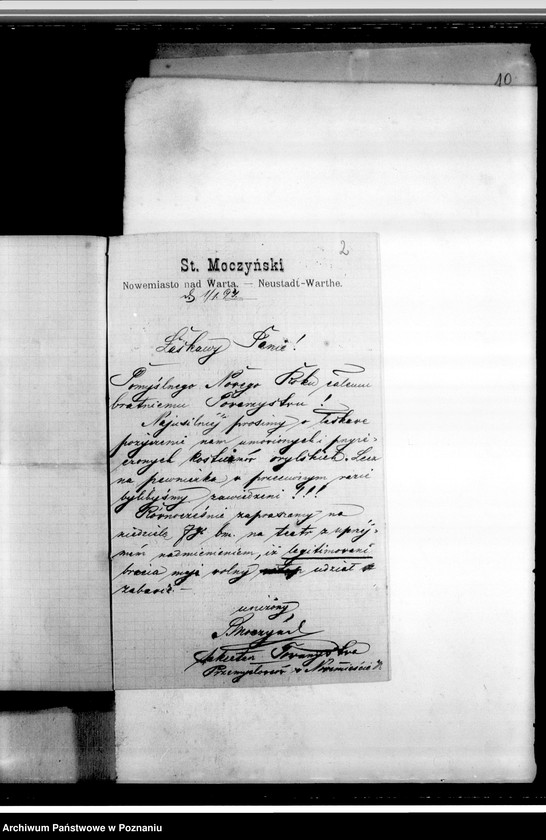 10
2
St. Moczyński
Nowemiasto nad Wartą. — Neustadt-Warthe.
d. 1/1. 97
Łaskawy Panie!
Pomyślnego Nowego Roku całemu
bratniemu Towarzystwu!
Najusilniéj prosimy o łaskawe
pożyczenie nam umówionych i przyrze-
czonych kostiumów . Lecz
na pewniaka w przeciwnym razie
bylibyśmy zawiedzeni!!!
Równocześnie zapraszamy na
niedzielę bm. na teatr z uprzéj-
mem nadmienieniem, iż legitimowani
bracia mają wolny udział w
zabawie.—
uniżony
SMoczyński
Sekretarz Towarzystwa
Przemysłowców w Nowemieście
Archiwum Państwowe w Poznaniu